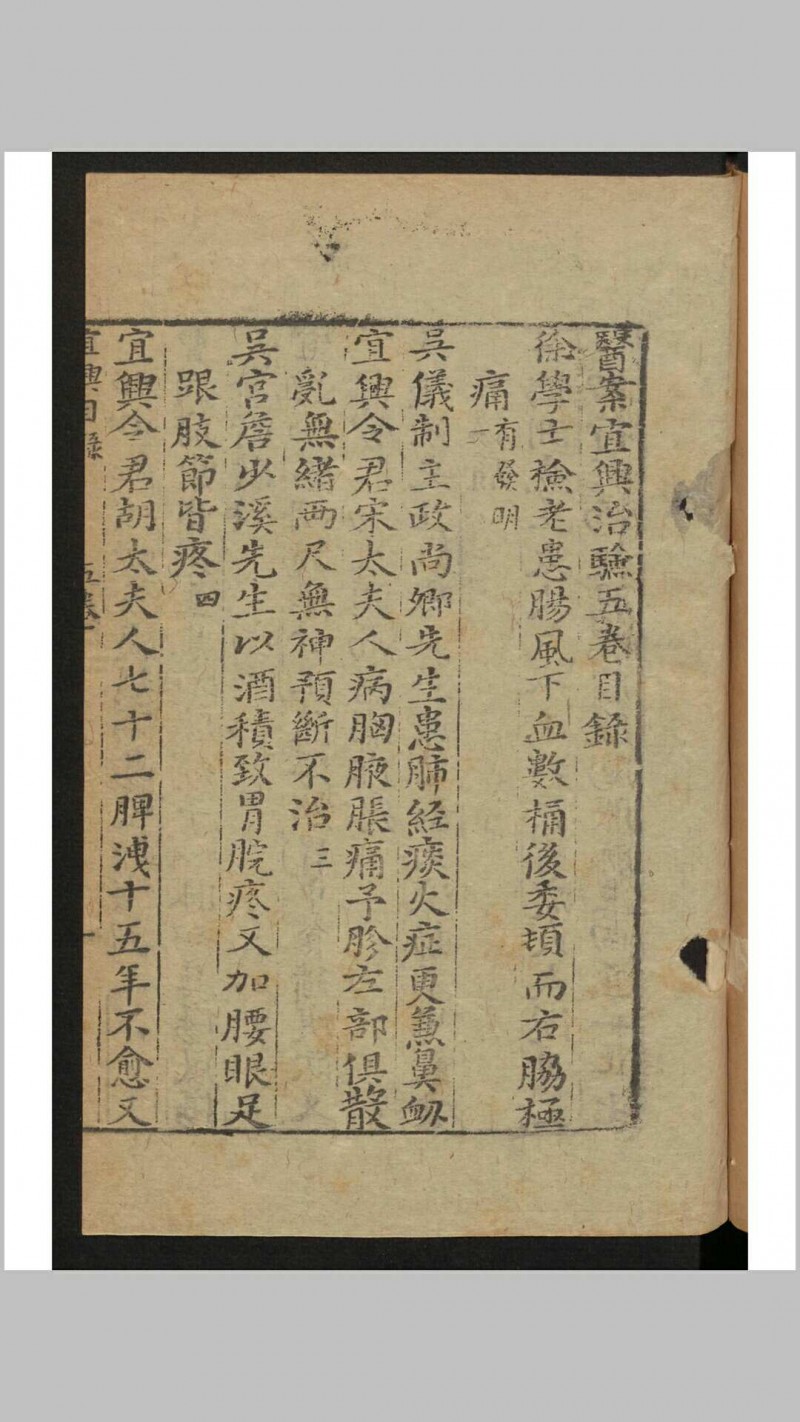 醫案宜興治驗五卷目錄
徐學士檢老患腸風下血數桶後委頓而右脇極
痛一有發明
吳儀制主政尚鄉先生患肺經痰火症更蒹鼻衂
宜興令君宋太夫人病胸腋脹痛予胗左部俱散
亂無緒兩尺無神預斷不治三
吳宮詹少溪先生以酒積致胃脘疼又加腰眼足
跟肢節皆疼四
宜興令君胡太夫人七十二脾洩十五年不愈又
宜興目錄 五卷 一